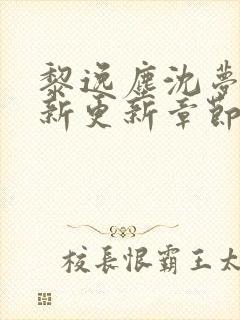 黎逸塵沈夢
新更新章節
校長恨霸王太